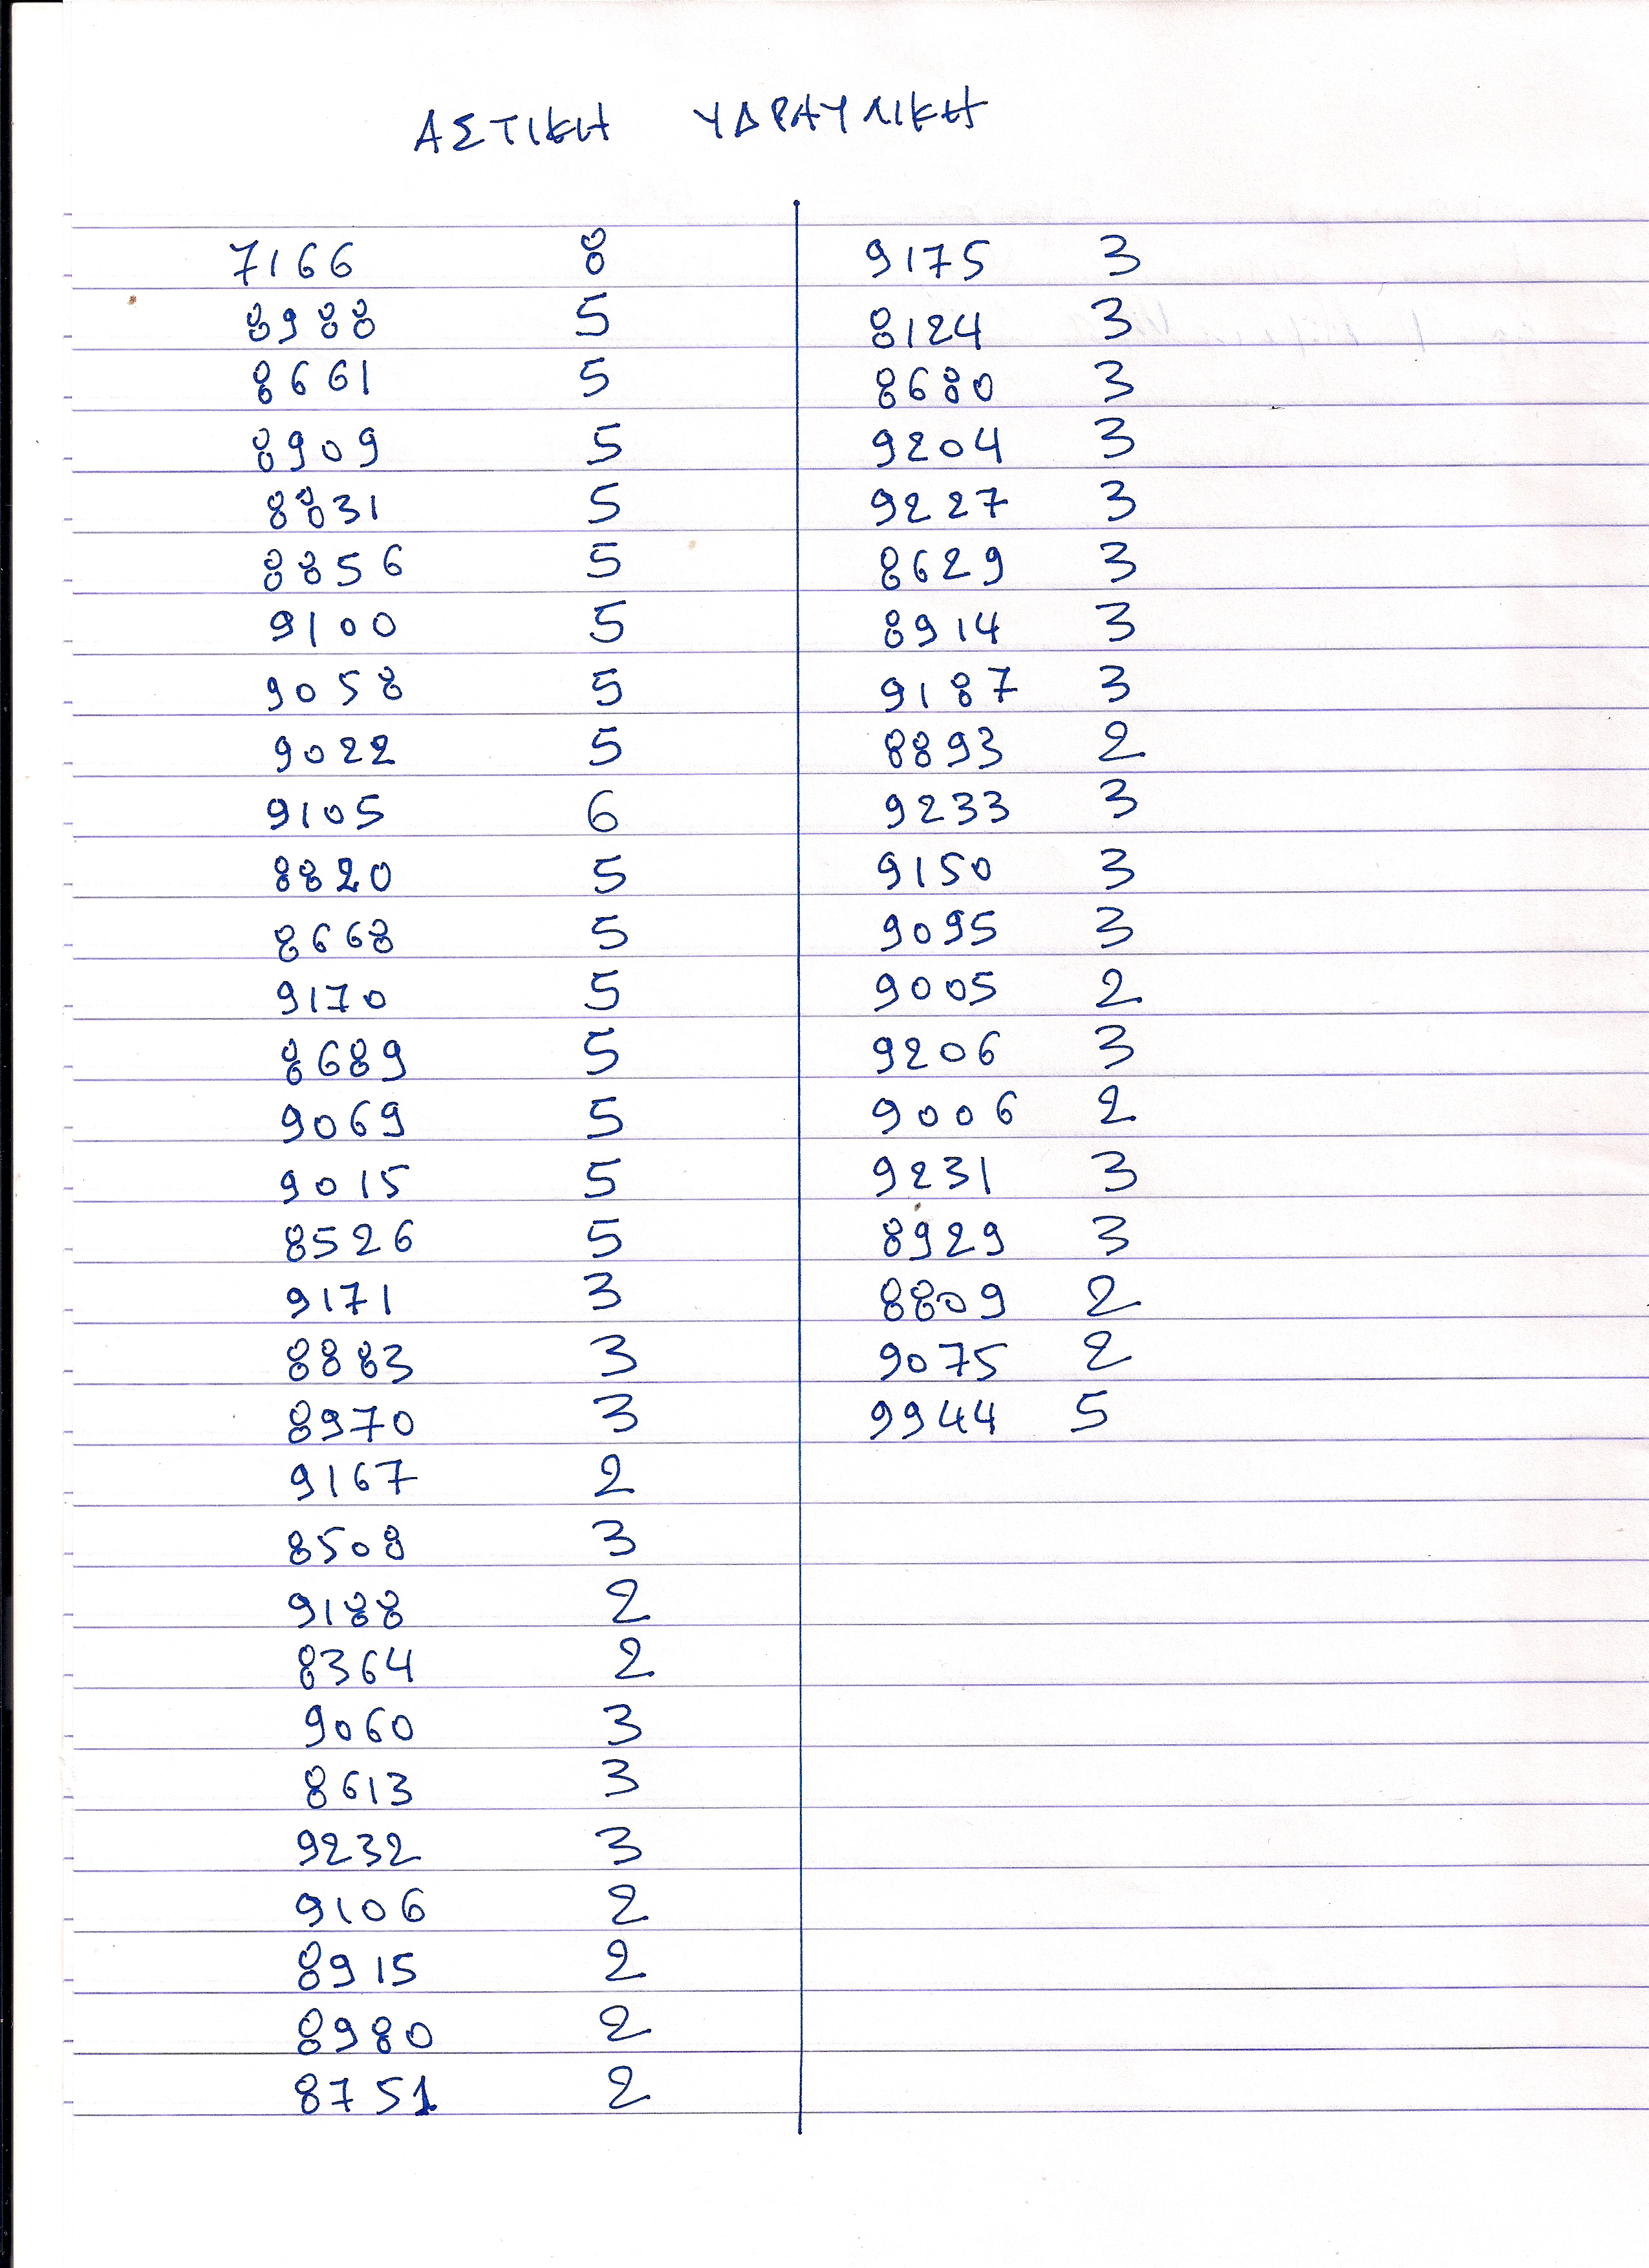 ΑΣΤΙΚΗ ΥΔΡΑΥΛΙΚΗ
7166 8
8988 5
8661 5
8909 5
8831 5
8856 5
9100 5
9058 5
9022 5
9105 6
8820 5
8668 5
9170 5
8689 5
9069 5
9015 5
8526 5
9171 3
8883 3
8970 3
9167 2
8508 3
9188 2
8364 2
9060 3
8613 3
9232 3
9106 2
8915 2
8980 2
8751 2
9175 3
8124 3
8680 3
9204 3
9227 3
8629 3
8914 3
9187 3
8893 2
9233 3
9150 3
9095 3
9005 2
9206 3
9006 2
9231 3
8929 3
8809 2
9075 2
9944 5